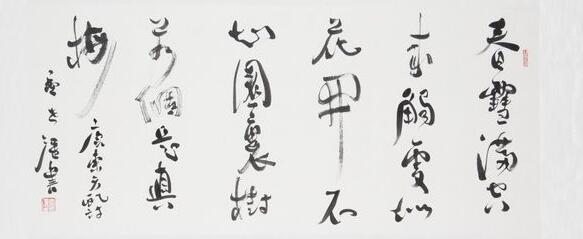 春雪滿空
來觸處似
花開不
知園裏樹
若個是真
梅
唐東方虬詩